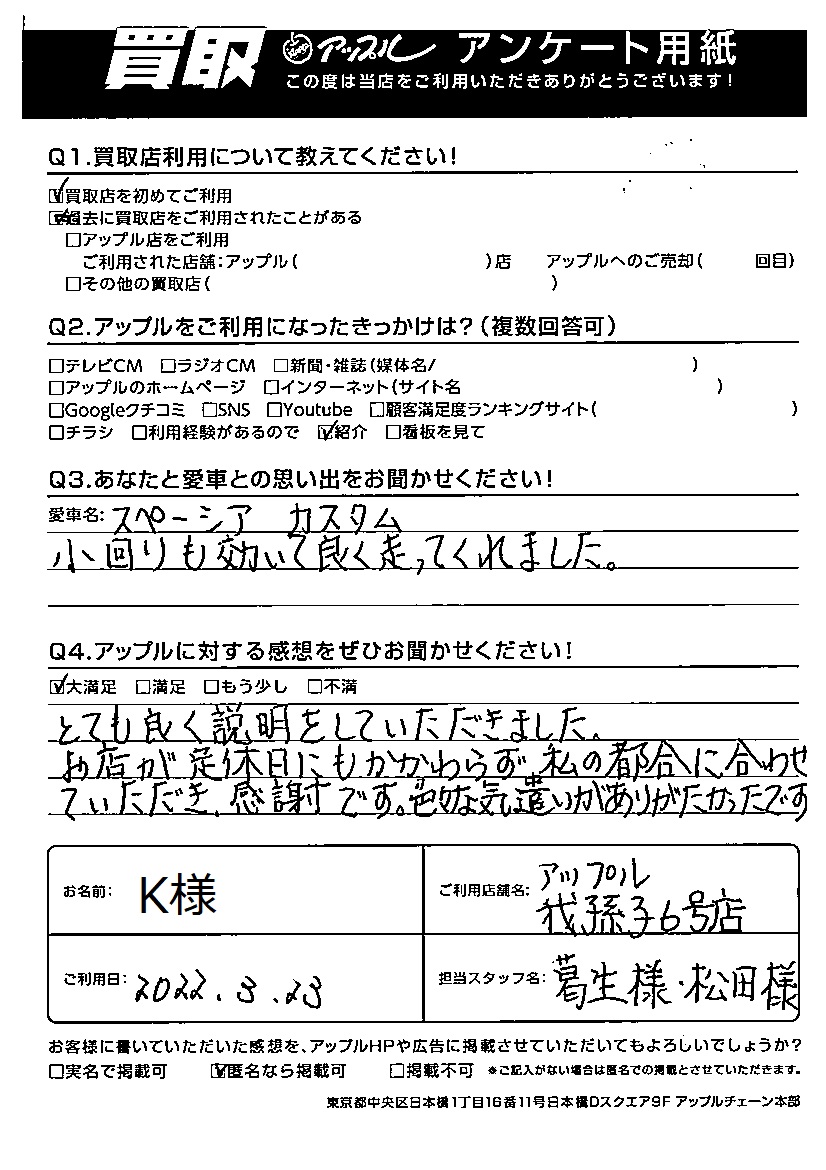 買取 アップル アンケート用紙
この度は当店をご利用いただきありがとうございます!
Q1.買取店利用について教えてください!
☑買取店を初めてご利用
☑過去に買取店をご利用されたことがある
□アップル店をご利用
ご利用された店舗:アップル( )店 アップルへのご売却( 回目)
□その他の買取店( )
Q2.アップルをご利用になったきっかけは?(複数回答可)
□テレビCM □ラジオCM □新聞・雑誌(媒体名/ )
□アップルのホームページ □インターネット(サイト名 )
□Googleクチコミ □SNS □Youtube □顧客満足度ランキングサイト( )
□チラシ □利用経験があるので ☑紹介 □看板を見て
Q3.あなたと愛車との思い出をお聞かせください!
愛車名: スペーシア カスタム
小回りも効いて良く走ってくれました。
Q4.アップルに対する感想をぜひお聞かせください!
☑大満足 □満足 □もう少し □不満
とても良く説明をしていただきました。
お店が定休日にもかかわらず、私の都合に合わせ
ていただき、感謝です。色々な気遣いがありがたかったです
お名前: K様
ご利用店舗名: アップル
我孫子6号店
ご利用日: 2022.3.23
担当スタッフ名: 葛生様・松田様
お客様に書いていただいた感想を、アップルHPや広告に掲載させていただいてもよろしいでしょうか?
□実名で掲載可 ☑匿名なら掲載可 □掲載不可 ※ご記入がない場合は匿名での掲載とさせていただきます。
東京都中央区日本橋1丁目16番11号日本橋Dスクエア9F アップルチェーン本部